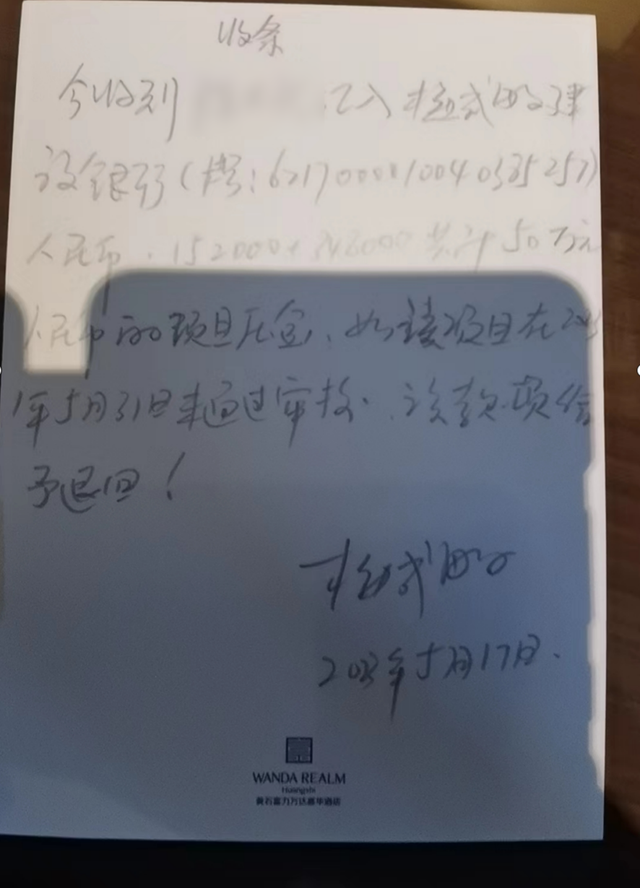 收条
今收到 汇入 的建
设银行(卡号:6217000010040335257)
人民币:152000+348000 共计50万元
人民币的项目压金、如该项目在
年5月31日未通过审核.该款项给
予退回!
年5月17日.
WANDA REALM
Huangshi
黄石富力万达嘉华酒店